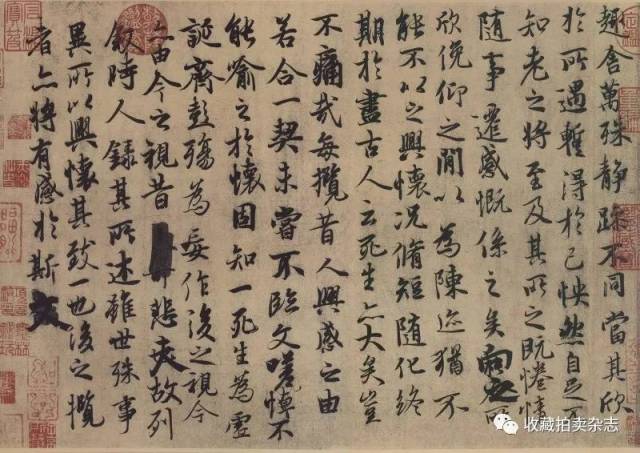 趣舍萬殊静躁不同當其欣
於所遇暫得於己怏然自足不
知老之將至及其所之既惓情
隨事遷感慨係之矣向之所
欣俛仰之閒以為陳迹猶不
能不以之興懷况脩短隨化終
期於盡古人云死生亦大矣豈
不痛哉每攬昔人興感之由
若合一契未嘗不臨文嗟悼不
能喻之於懷固知一死生為虛
誕齊彭殤為妄作後之視今
亦由今之視昔悲夫故列
敘時人錄其所述雖世殊事
異所以興懷其致一也後之攬
者亦將有感於斯文
收藏拍卖杂志